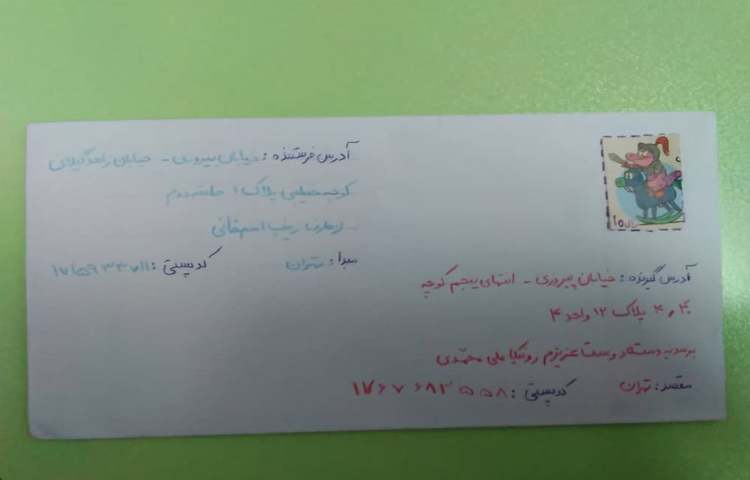 آدرس فرستنده: خیابان پیروزی - خیابان
کوچه پلاک ۱ طبقه دوم
از طرف زینب اصفهانی
مبدا: تهران کد پستی:
ریال ۱۵
آدرس گیرنده: خیابان پیروزی - انتهای پنجم کوچه
۴٫۴ پلاک ۱۲ واحد ۴
برسد به دست دوست عزیزم رونیکا ملی محمدی
مقصد: تهران کد پستی: ۱۷۶۷۶۸۳۵۵۸